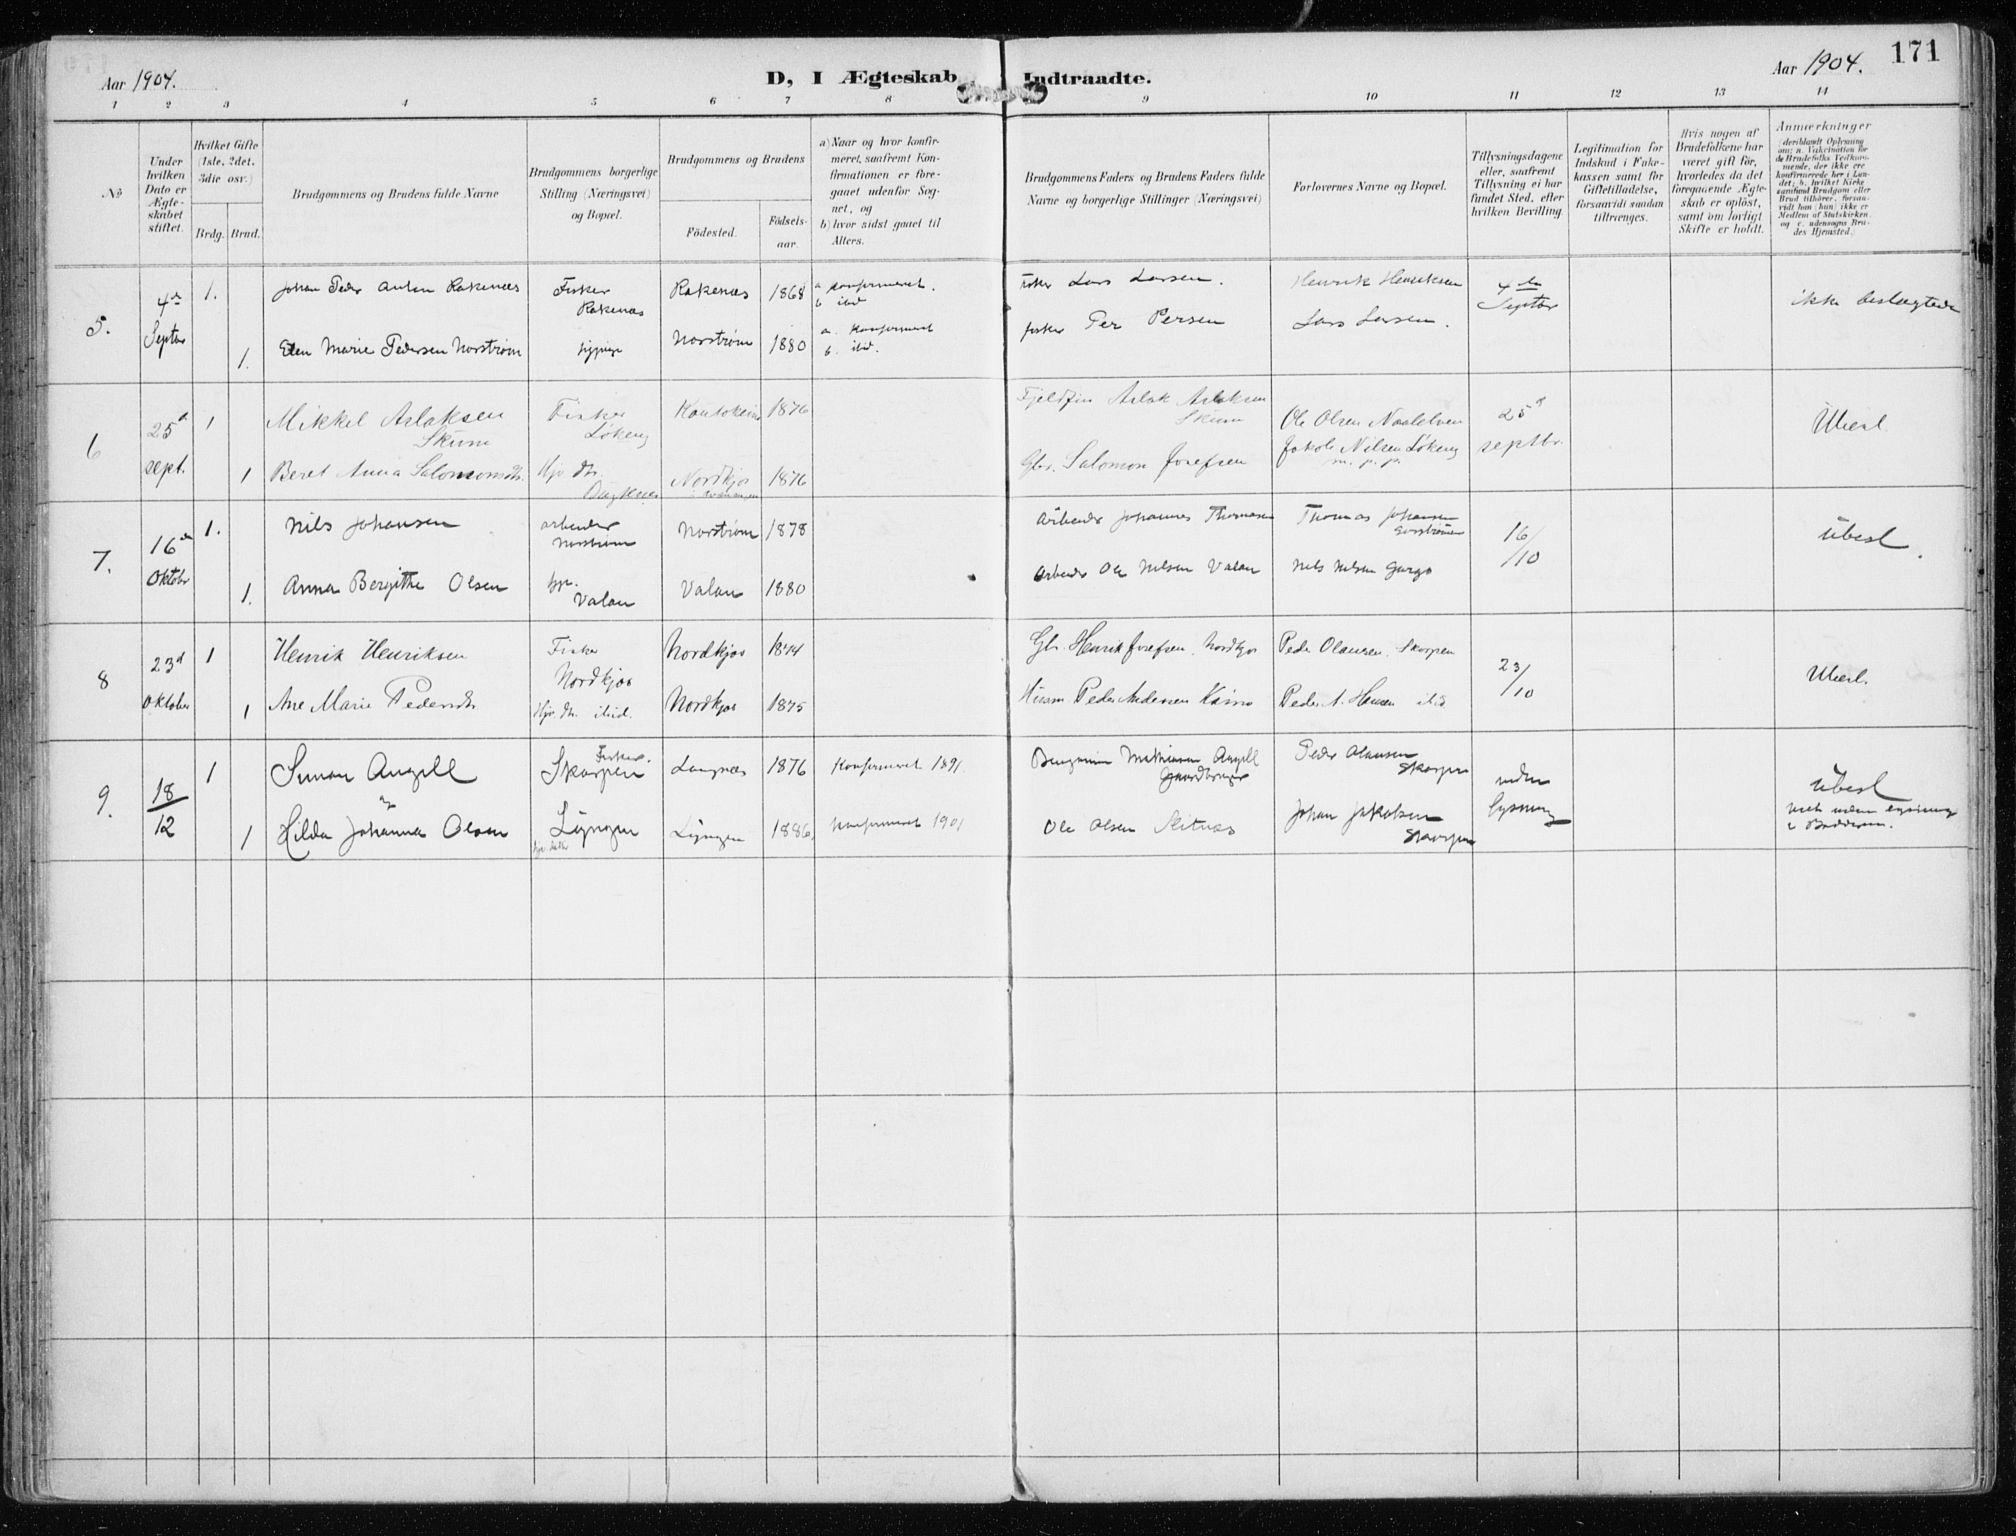 Aar 1904.
D, I Ægteskab Indtraadte.
Aar 1904.
171
1 2 3 4 5 6 7 8 9 10 11 12 13 14
No
Under hvilken Dato er Ægteskabet stiftet.
Hvilket Gifte (1ste, 2det, 3die osv.)
Brdg. Brud.
Brudgommens og Brudens fulde Navne
Brudgommens borgerlige Stilling (Næringsvei) og Bopæl.
Brudgommens og Brudens
Födested.
Födselsaar.
a) Naar og hvor konfirmeret, saafremt Konfirmationen er foregaaet udenfor Sognet, og
b) hvor sidst gaaet til Alters.
Brudgommens Faders og Brudens Faders fulde Navne og borgerlige Stillinger (Næringsvei)
Forlovernes Navne og Bopæl.
Tillysningsdagene eller, saafremt Tillysning ei har fundet Sted, efter hvilken Bevilling.
Legitimation for Indskud i Enkekassen samt for Giftetilladelse, forsaavidt saadan tiltrænges.
Hvis nogen af Brudefolkene har været gift för, hvorledes da det foregaaende Ægteskab er oplöst, samt om lovligt Skifte er holdt.
Anmærkninger (deriblandt Oplysning om: a. Vakcination for de Brudefolks Vedkommende, der ikke ere konfirmerede her i Landet; b. hvilket Kirkesamfund Brudgom eller Brud tilhörer, forsaavidt han (hun) ikke er Medlem af Statskirken, og c. udensogns Brudes Hjemsted.)
5. 4de Septbr 1. Johan Peder Anton Rakenæs Fisker Rakenæs Rakenæs 1868 a konfirmeret. b ibid Fisker Lars Larsen. Henrik Henriksen 4de Septbr ikke beslægtede
1. Elen Marie Pedersen Norstrøm Norstrøm 1880 a. konfirmeret b. ibid. fisker Per Persen Lars Larsen.
6 25d sept. 1 Mikkel Aslaksen Skum Fisker Løkeng Kautokeino 1876 Fjeldfin Aslak Aslaksen Skum Ole Olsen 25d septbr. Ubesl.
1 Beret Anna Salomonsdtr. Hjv. dtr. Nordkjos 1876 Gbr. Salomon Josefsen Jakob Nilsen Løkeng m. p. p.
7. 16de Oktobr 1. Nils Johansen arbeider Norstrøm Norstrøm 1878 Arbeider Johannes Thomasen Thomas Johansen 16/10 Ubesl.
1. Anna Bergitthe Olsen hjv. Valan Valan 1880 Arbeider Ole Nilsen Valan Nils Nilsen Gargo
8 23d Oktober 1 Henrik Henriksen Fisker Nordkjos Nordkjos 1874 Gbr. Henrik Josefsen, Nordkjos Peder Olausen, Skorpen 23/10 Ubesl.
1 Ane Marie Pedersdtr Hjv. dtr. ibid. Nordkjos 1875 Husm. Peder Andersen Peder A. Hansen ibid
9. 18/12 1 Simon Angell Fisker. Skorpen Langnæs 1876 Konfirmeret 1891. Benjamin Mathiasen Angell Gaardbruger Peder Olausen Skorpen uden lysning Ubesl
og
1 Hilda Johanna Olsen Lyngen Lyngen 1886, Konfirmeret 1901 Ole Olsen Johan Jakobsen Skorpen